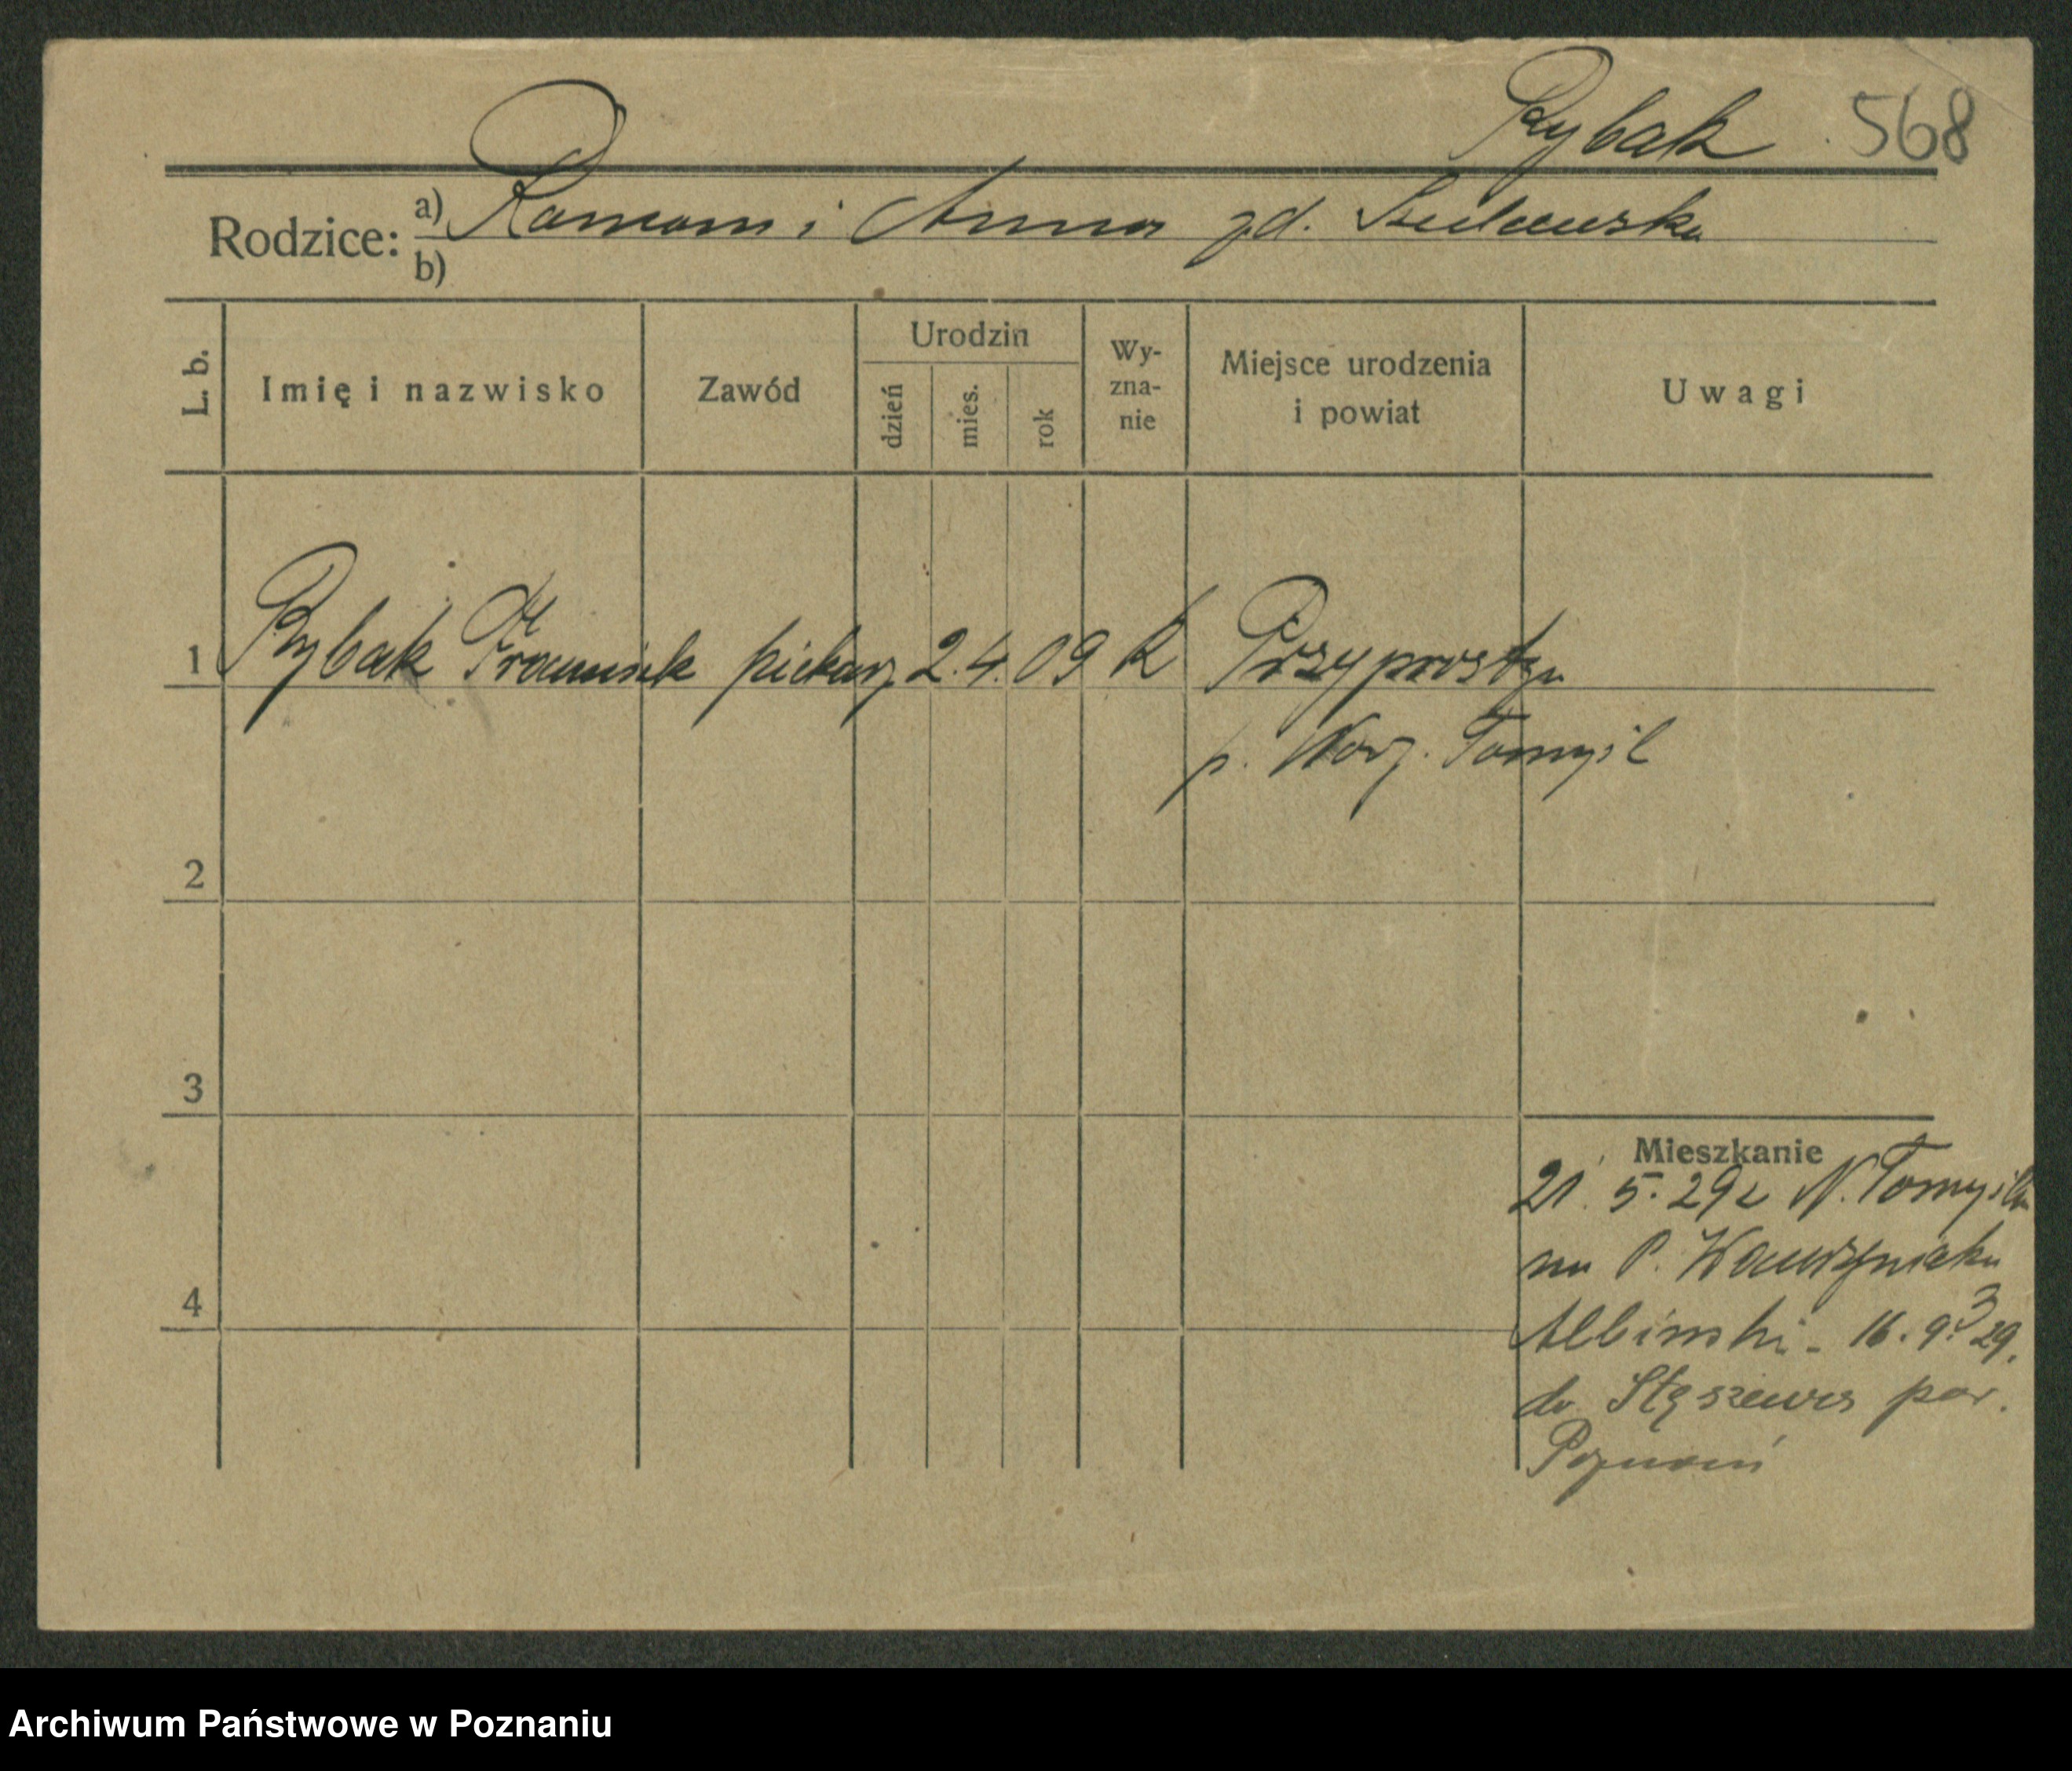 Rybak 568
Rodzice: a) Roman i Anna zd.
b)
L. b. Imię i nazwisko Zawód Urodzin dzień mies. rok Wy-zna-nie Miejsce urodzenia i powiat Uwagi
1 Rybak Franciszek piekarz 2. 4. 09 K Przyprostyn
p. Now. Tomyśl
2
3
Mieszkanie
21. 5. 29 z N. Tomyśla
na P. Wawrzyniaka
4
Albinski - 16. 9. 29.
do Stęszewa pow.
Poznań
Archiwum Państwowe w Poznaniu